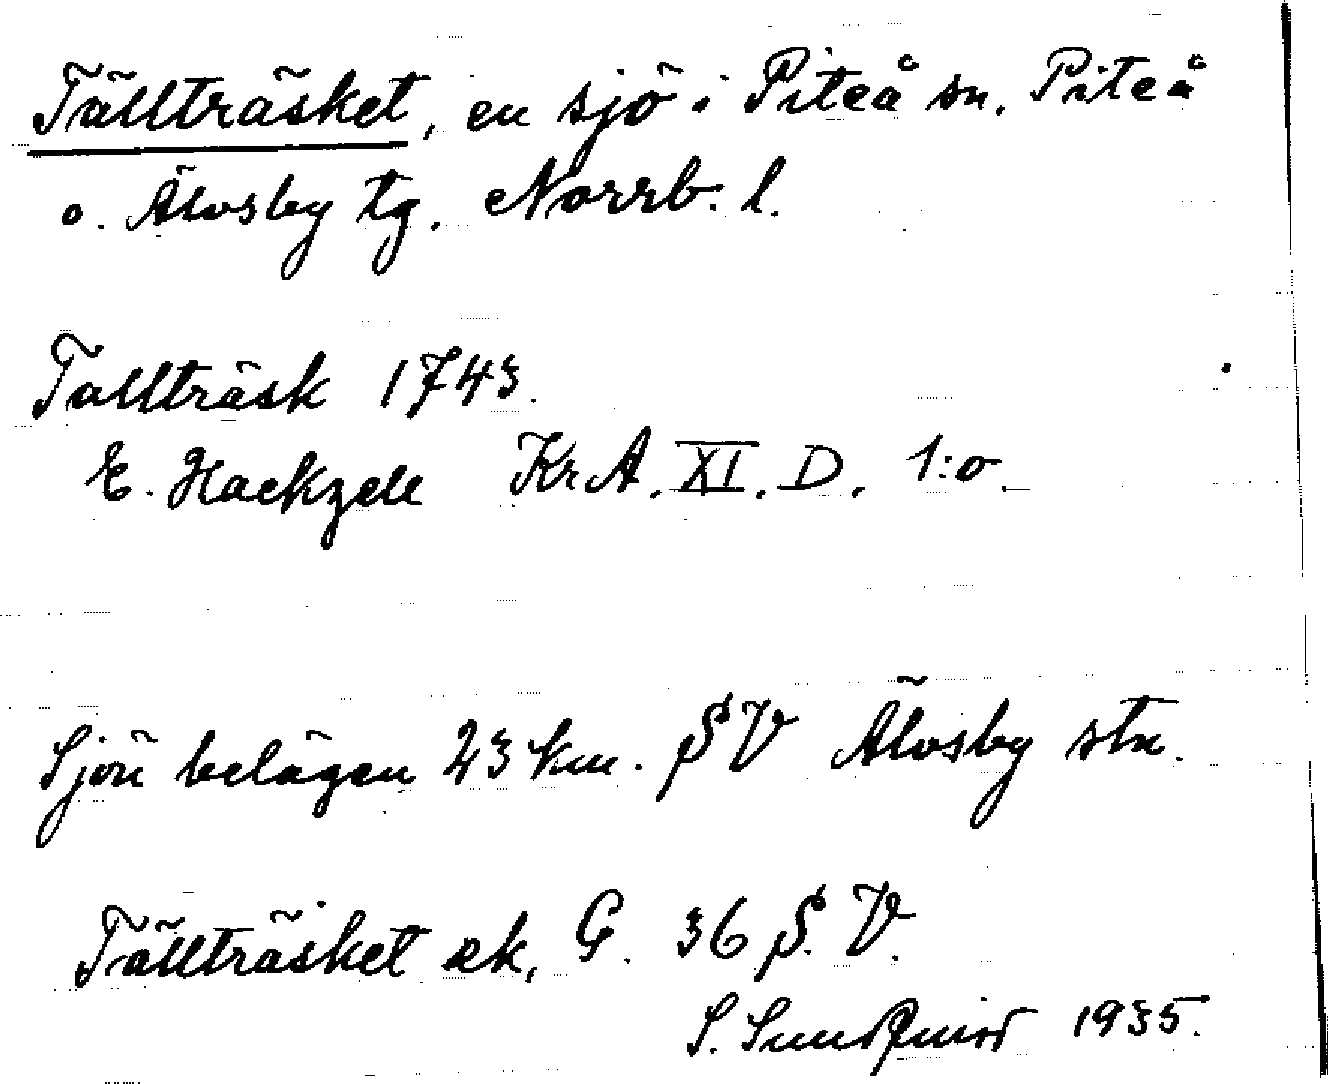 Tällträsket, en sjö i Piteå sn. Piteå
o. Älvsby tg. Norrb. l.
Tallträsk 1743.
E. Hackzell Kr A. XI. D. 1:o.
Sjön belägen 23 km. SV Älvsby stn.
Tällträsket ek, G. 36 S. V.
S. Sundqvist 1935.